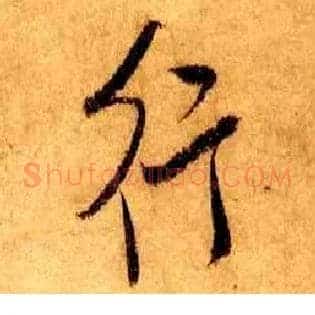 行
Shufazidian.COM